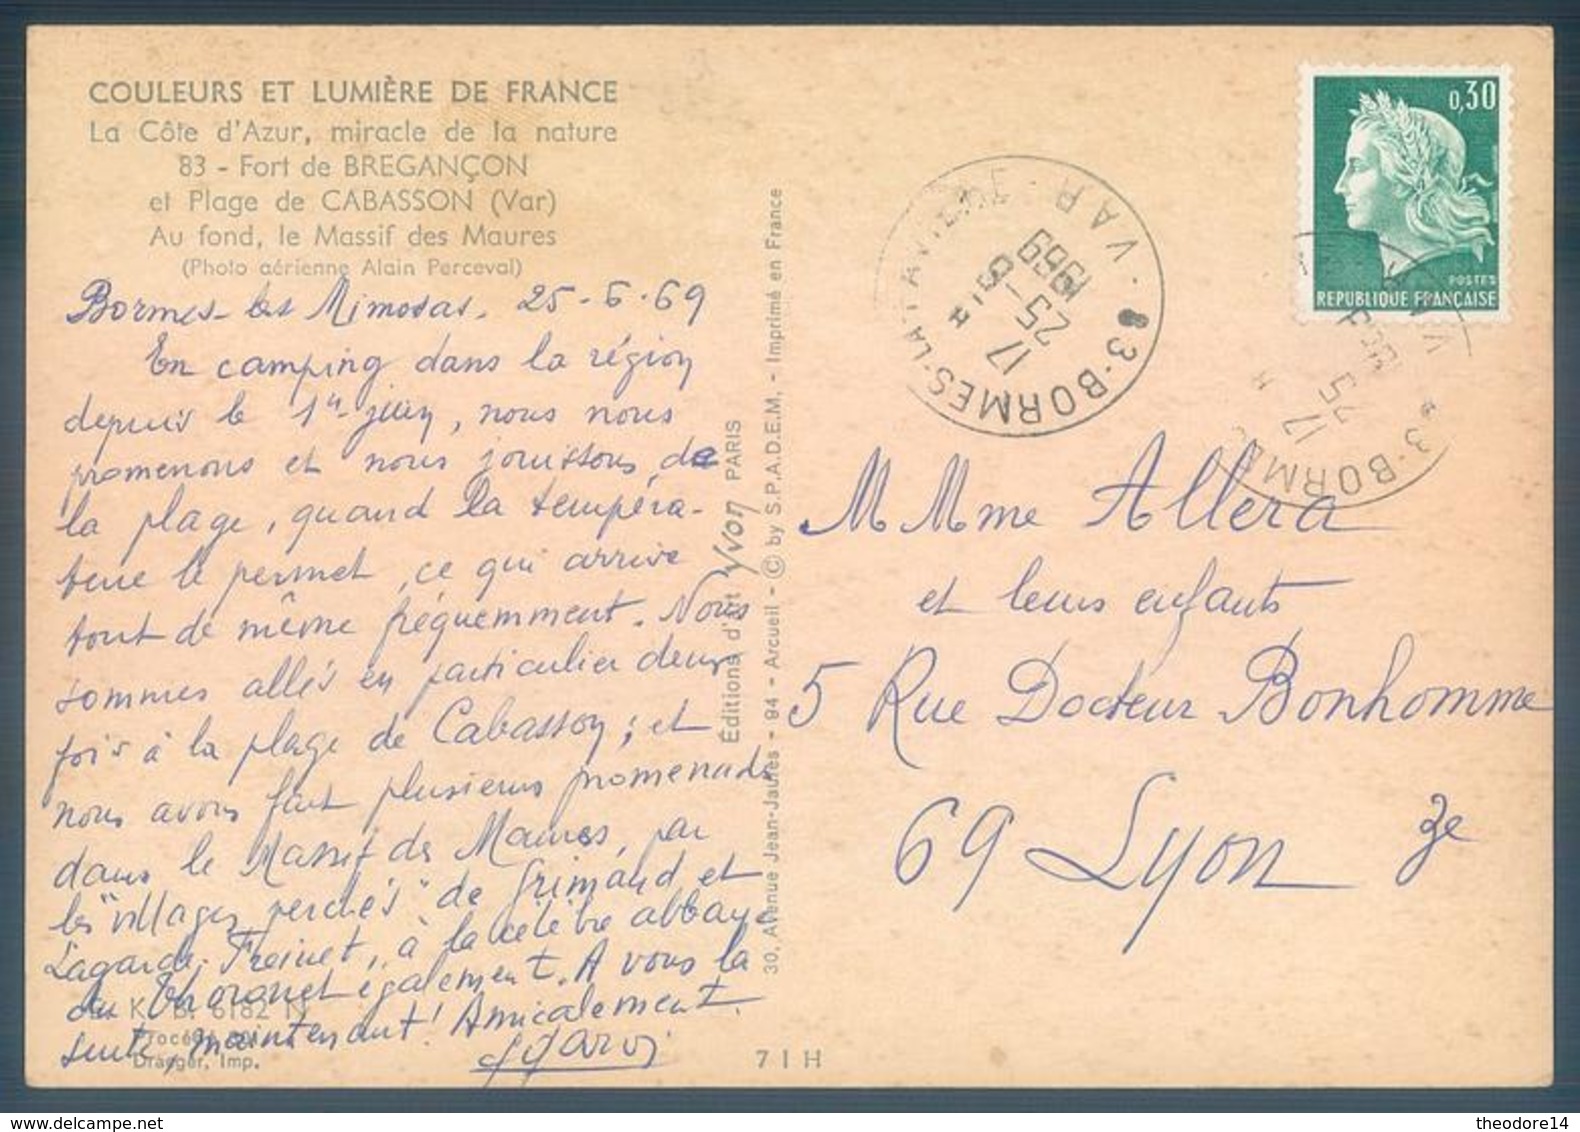 COULEURS ET LUMIÈRE DE FRANCE
La Côte d'Azur, miracle de la nature
83 - Fort de BREGANÇON
et Plage de CABASSON (Var)
Au fond, le Massif des Maures
(Photo aérienne Alain Perceval)
Bormes-les Mimosas. 25-6-69
En camping dans la région
depuis le 1er juin, nous nous
promenons et nous jouissons de
la plage, quand la tempéra-
ture le permet, ce qui arrive
tout de même fréquemment. Nous
sommes allés en particulier deux
fois à la plage de Cabasson; et
nous avons fait plusieurs promenades
dans le Massif des Maures, par
les "villages perchés" de Grimaud et
Lagarde-Freinet, à la célèbre abbaye
du Thoronet également. A vous la
suite, maintenant! Amicalement.
K. B. 6182 N
Draeger, Imp.
Éditions d'Art Yvon PARIS
30, Avenue Jean-Jaurès - 94 - Arcueil - © by S.P.A.D.E.M. - Imprimé en France
7 1 H
0,30
POSTES
REPUBLIQUE FRANÇAISE
83-BORMES-LA VAR
17 H
25-6
1969
83-BORMES
17 H
25
M Mme Allera
et leurs enfants
5 Rue Docteur Bonhomme
69 Lyon 3e
theodore14